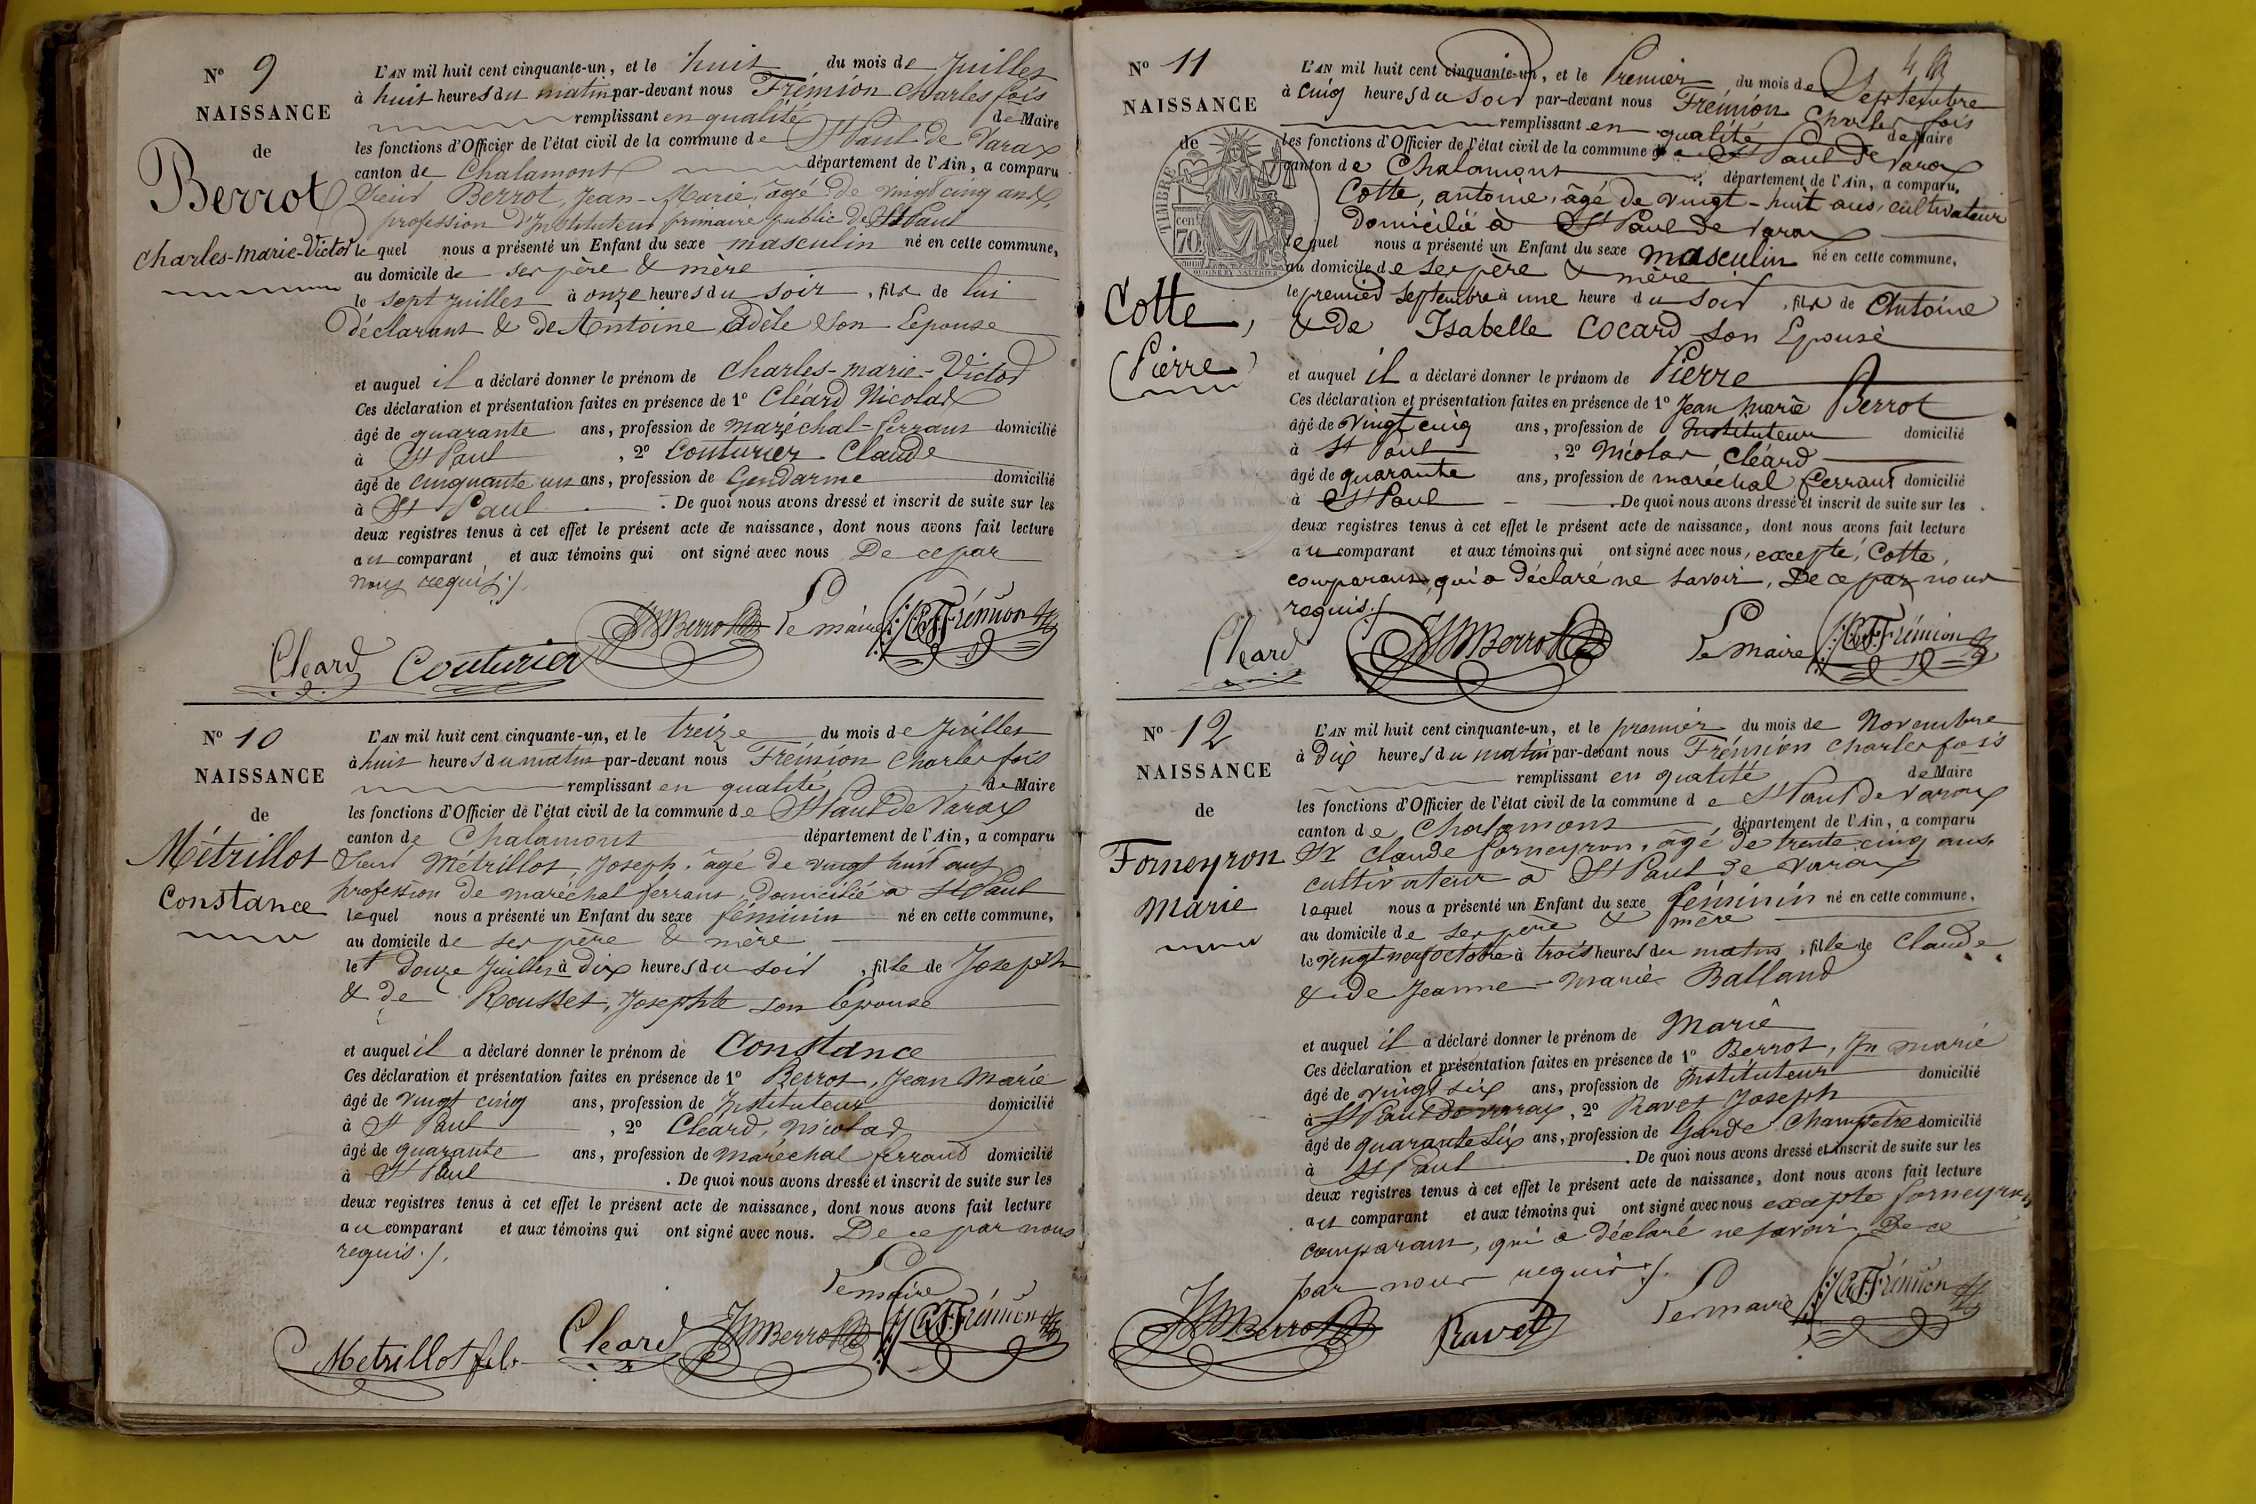 N° 9
NAISSANCE
de
Berrot
Charles-Marie-Victor
L'AN mil huit cent cinquante-un, et le huit du mois de Juillet
à huit heures du matin par-devant nous Frémion Charles fois
remplissant en qualité de Maire
les fonctions d'Officier de l'état civil de la commune de St Paul de Varax
canton de Chalamont département de l'Ain, a comparu
Sieur Berrot, Jean-Marie, âgé de vingt cinq ans,
profession d'Instituteur primaire public de St Paul
lequel nous a présenté un Enfant du sexe masculin né en cette commune,
au domicile de ses père & mère
le sept juillet à onze heures du soir, fils de lui
déclarant & de Antoine Adèle son Epouse
et auquel il a déclaré donner le prénom de Charles-marie-Victor
Ces déclaration et présentation faites en présence de 1° Cléard Nicolas
âgé de quarante ans, profession de maréchal-ferrant domicilié
à St Paul, 2° Couturier Claude
âgé de cinquante un ans, profession de Gendarme domicilié
à St Paul. De quoi nous avons dressé et inscrit de suite sur les
deux registres tenus à cet effet le présent acte de naissance, dont nous avons fait lecture
au comparant et aux témoins qui ont signé avec nous De ce par
nous requis ./.
Cleard Couturier JMBerrot Le maire Ch. F. Frémion
N° 10
NAISSANCE
de
Métrillot
Constance
L'AN mil huit cent cinquante-un, et le treize du mois de Juillet
à huit heures du matin par-devant nous Frémion Charles fois
remplissant en qualité de Maire
les fonctions d'Officier de l'état civil de la commune de St Paul De Varax
canton de Chalamont département de l'Ain, a comparu
Sieur Métrillot, Joseph, âgé de vingt huit ans
profession de maréchal ferrant, domicilié à St Paul
lequel nous a présenté un Enfant du sexe féminin né en cette commune,
au domicile de ses père & mère
le douze Juillet à dix heures du soir, fille de Joseph
& de Rousset, Josephte son Epouse
et auquel il a déclaré donner le prénom de Constance
Ces déclaration et présentation faites en présence de 1° Berrot, Jean Marie
âgé de vingt cinq ans, profession de Instituteur domicilié
à St Paul, 2° Cléard, Nicolas
âgé de quarante ans, profession de maréchal ferrant domicilié
à St Paul. De quoi nous avons dressé et inscrit de suite sur les
deux registres tenus à cet effet le présent acte de naissance, dont nous avons fait lecture
au comparant et aux témoins qui ont signé avec nous. De ce par nous
requis ./.
Le maire
Metrillot fils Cleard JMBerrot Ch. F. Frémion
N° 11
NAISSANCE
de
TIMBRE
cent
70
Cotte,
(Pierre)
L'AN mil huit cent cinquante-un, et le Premier du mois de Septembre
à cinq heures du soir par-devant nous Frémion Charles fois
remplissant en qualité de Maire
les fonctions d'Officier de l'état civil de la commune de St Paul de Varax
canton de Chalamont département de l'Ain, a comparu,
Cotte, antoine, âgé de vingt-huit ans, cultivateur
Domicilié à St Paul de Varax
lequel nous a présenté un Enfant du sexe masculin né en cette commune,
au domicile de ses père & mère
le premier Septembre à une heure du soir, fils de Antoine
& de Isabelle Cocard son Epouse
et auquel il a déclaré donner le prénom de Pierre
Ces déclaration et présentation faites en présence de 1° Jean Marie Berrot
âgé de vingt cinq ans, profession de Instituteur domicilié
à St Paul, 2° Nicolas Cléard
âgé de quarante ans, profession de maréchal ferrant domicilié
à St Paul. De quoi nous avons dressé et inscrit de suite sur les
deux registres tenus à cet effet le présent acte de naissance, dont nous avons fait lecture
au comparant et aux témoins qui ont signé avec nous, excepté, Cotte,
comparant, qui a déclaré ne savoir, De ce par nous
requis ./.
Cleard JMBerrot Le maire Ch. F. Frémion
N° 12
NAISSANCE
de
Forneyron
Marie
L'AN mil huit cent cinquante-un, et le premier du mois de Novembre
à Dix heures du matin par-devant nous Frémion Charles fois
remplissant en qualité de Maire
les fonctions d'Officier de l'état civil de la commune de St Paul de Varax
canton de Chalamont département de l'Ain, a comparu
Sr Claude forneyron, âgé de trente cinq ans,
cultivateur à St Paul de Varax
lequel nous a présenté un Enfant du sexe féminin né en cette commune,
au domicile de ses père & mère
le vingt neuf octobre à trois heures du matin, fille de Claude
& de Jeanne-Marie Balland
et auquel il a déclaré donner le prénom de Marie
Ces déclaration et présentation faites en présence de 1° Berrot, Jn marie
âgé de vingt six ans, profession de Instituteur domicilié
à St Paul de varax, 2° Ravet Joseph
âgé de quarante six ans, profession de Garde Champêtre domicilié
à St Paul. De quoi nous avons dressé et inscrit de suite sur les
deux registres tenus à cet effet le présent acte de naissance, dont nous avons fait lecture
au comparant et aux témoins qui ont signé avec nous excepté forneyron
comparant, qui a déclaré ne savoir, De ce
par nous requis ./.
JMBerrot Ravet Le maire Ch. F. Frémion